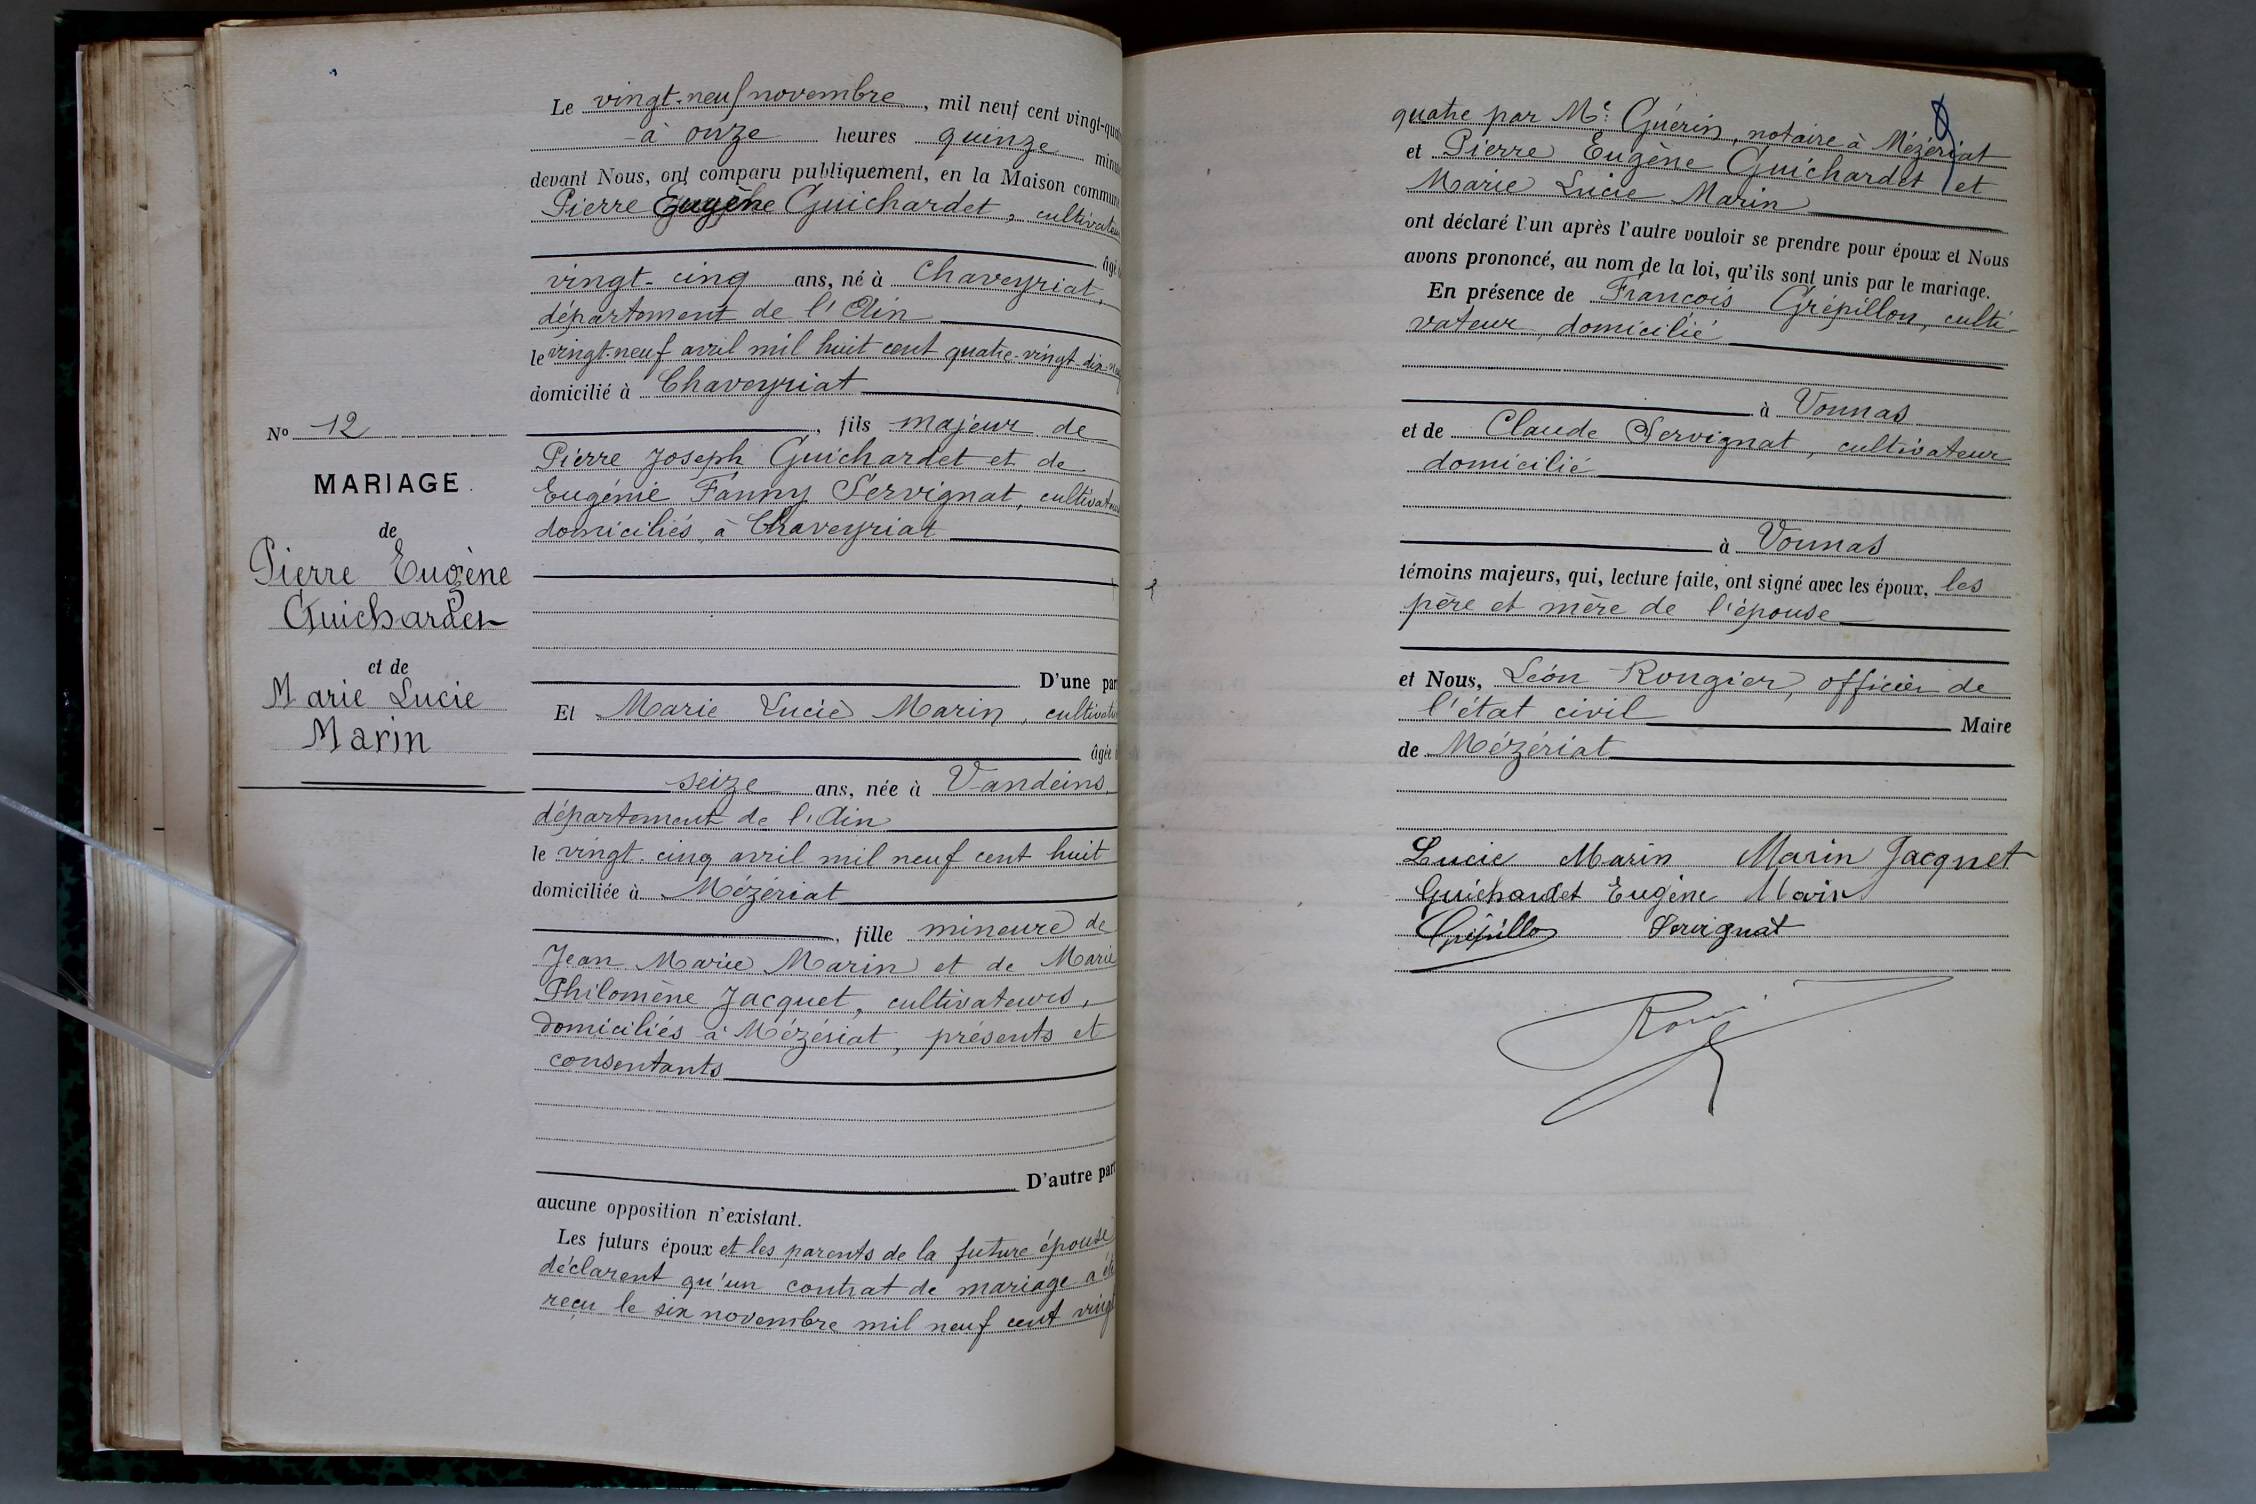 Nº 12
MARIAGE
de
Pierre Eugène
Guichardet
et de
Marie Lucie
Marin
Le vingt-neuf novembre, mil neuf cent vingt-quat
à onze heures quinze minut
devant Nous, ont comparu publiquement, en la Maison commune
Pierre Eugène Guichardet, cultivateu
âgé d
vingt-cinq ans, né à Chaveyriat,
département de l'Ain
le vingt-neuf avril mil huit cent quatre-vingt dix-neuf
domicilié à Chaveyriat
, fils majeur de
Pierre Joseph Guichardet et de
Eugénie Fanny Servignat, cultivateurs
domiciliés à Chaveyriat
D'une par
Et Marie Lucie Marin, cultivat
âgée d
seize ans, née à Vandeins,
département de l'Ain
le vingt-cinq avril mil neuf cent huit
domiciliée à Mézériat
, fille mineure de
Jean Marie Marin et de Marie
Philomène Jacquet, cultivateurs,
domiciliés à Mézériat, présents et
consentants
D'autre part
aucune opposition n'existant.
Les futurs époux et les parents de la future épouse
déclarent qu'un contrat de mariage a été
reçu le six novembre mil neuf cent vingt
quatre par Me: Guérin, notaire à Mézériat
et Pierre Eugène Guichardet et
Marie Lucie Marin
ont déclaré l'un après l'autre vouloir se prendre pour époux et Nous
avons prononcé, au nom de la loi, qu'ils sont unis par le mariage.
En présence de François Grépillon, culti-
vateur, domicilié
à Vonnas
et de Claude Servignat, cultivateur
domicilié
à Vonnas
témoins majeurs, qui, lecture faite, ont signé avec les époux, les
père et mère de l'épouse
et Nous, Léon Rougier, officier de
l'état civil Maire
de Mézériat
Lucie Marin Marin Jacquet
Guichardet Eugène Marin
Grépillon Servignat